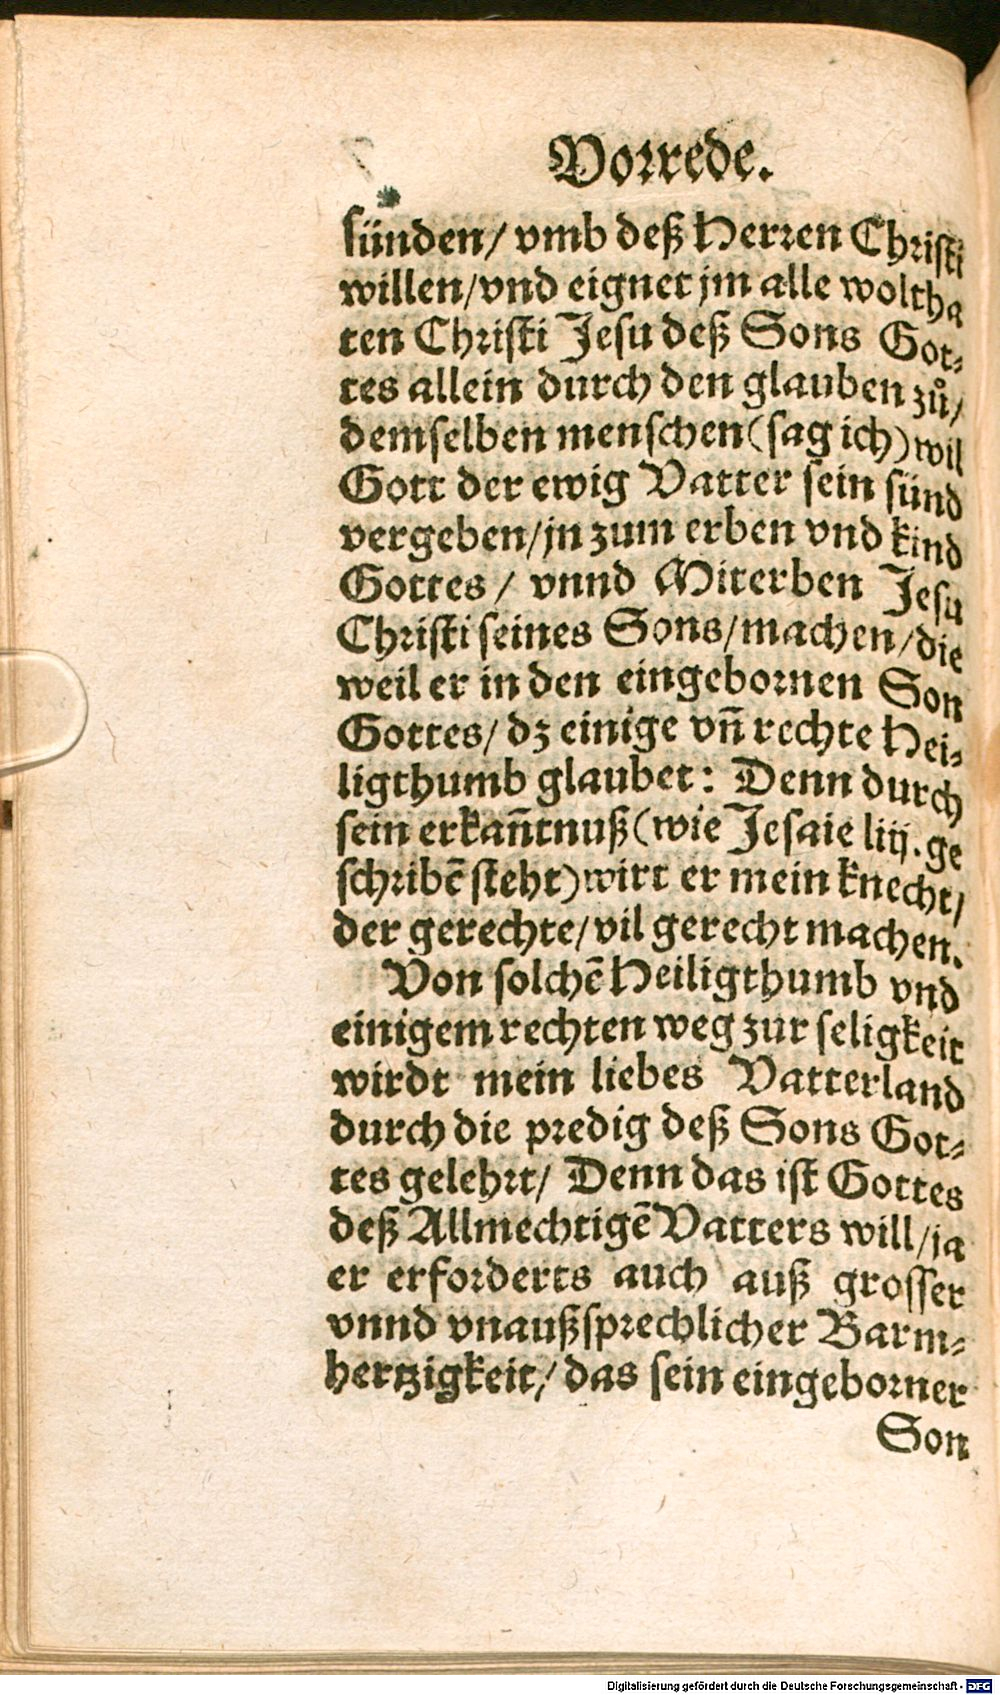 Vorrede.
sünden/ vmb deß Herren Christi
willen/vnd eignet jm alle woltha
ten Christi Jesu deß Sons Got⸗
tes allein durch den glauben zů/
demselben menschen(sag ich)wil
Gott der ewig Vatter sein sünd
vergeben/jn zum erben vnd kind
Gottes/ vnnd Miterben Jesu
Christi seines Sons/machen/die
weil er in den eingebornen Son
Gottes/ dz einige vn̄ rechte Hei⸗
ligthumb glaubet: Denn durch
sein erkan̄tnuß(wie Jesaie liij.ge
schribē steht)wirt er mein knecht/
der gerechte/vil gerecht machen.
Von solchē Heiligthumb vnd
einigem rechten weg zur seligkeit
wirdt mein liebes Vatterland
durch die predig deß Sons Got⸗
tes gelehrt/ Denn das ist Gottes
deß Allmechtigē Vatters will/ja
er erforderts auch auß grosser
vnnd vnaußsprechlicher Barm⸗
hertzigkeit/ das sein eingeborner
Son
Digitalisierung gefördert durch die Deutsche Forschungsgemeinschaft - DFG